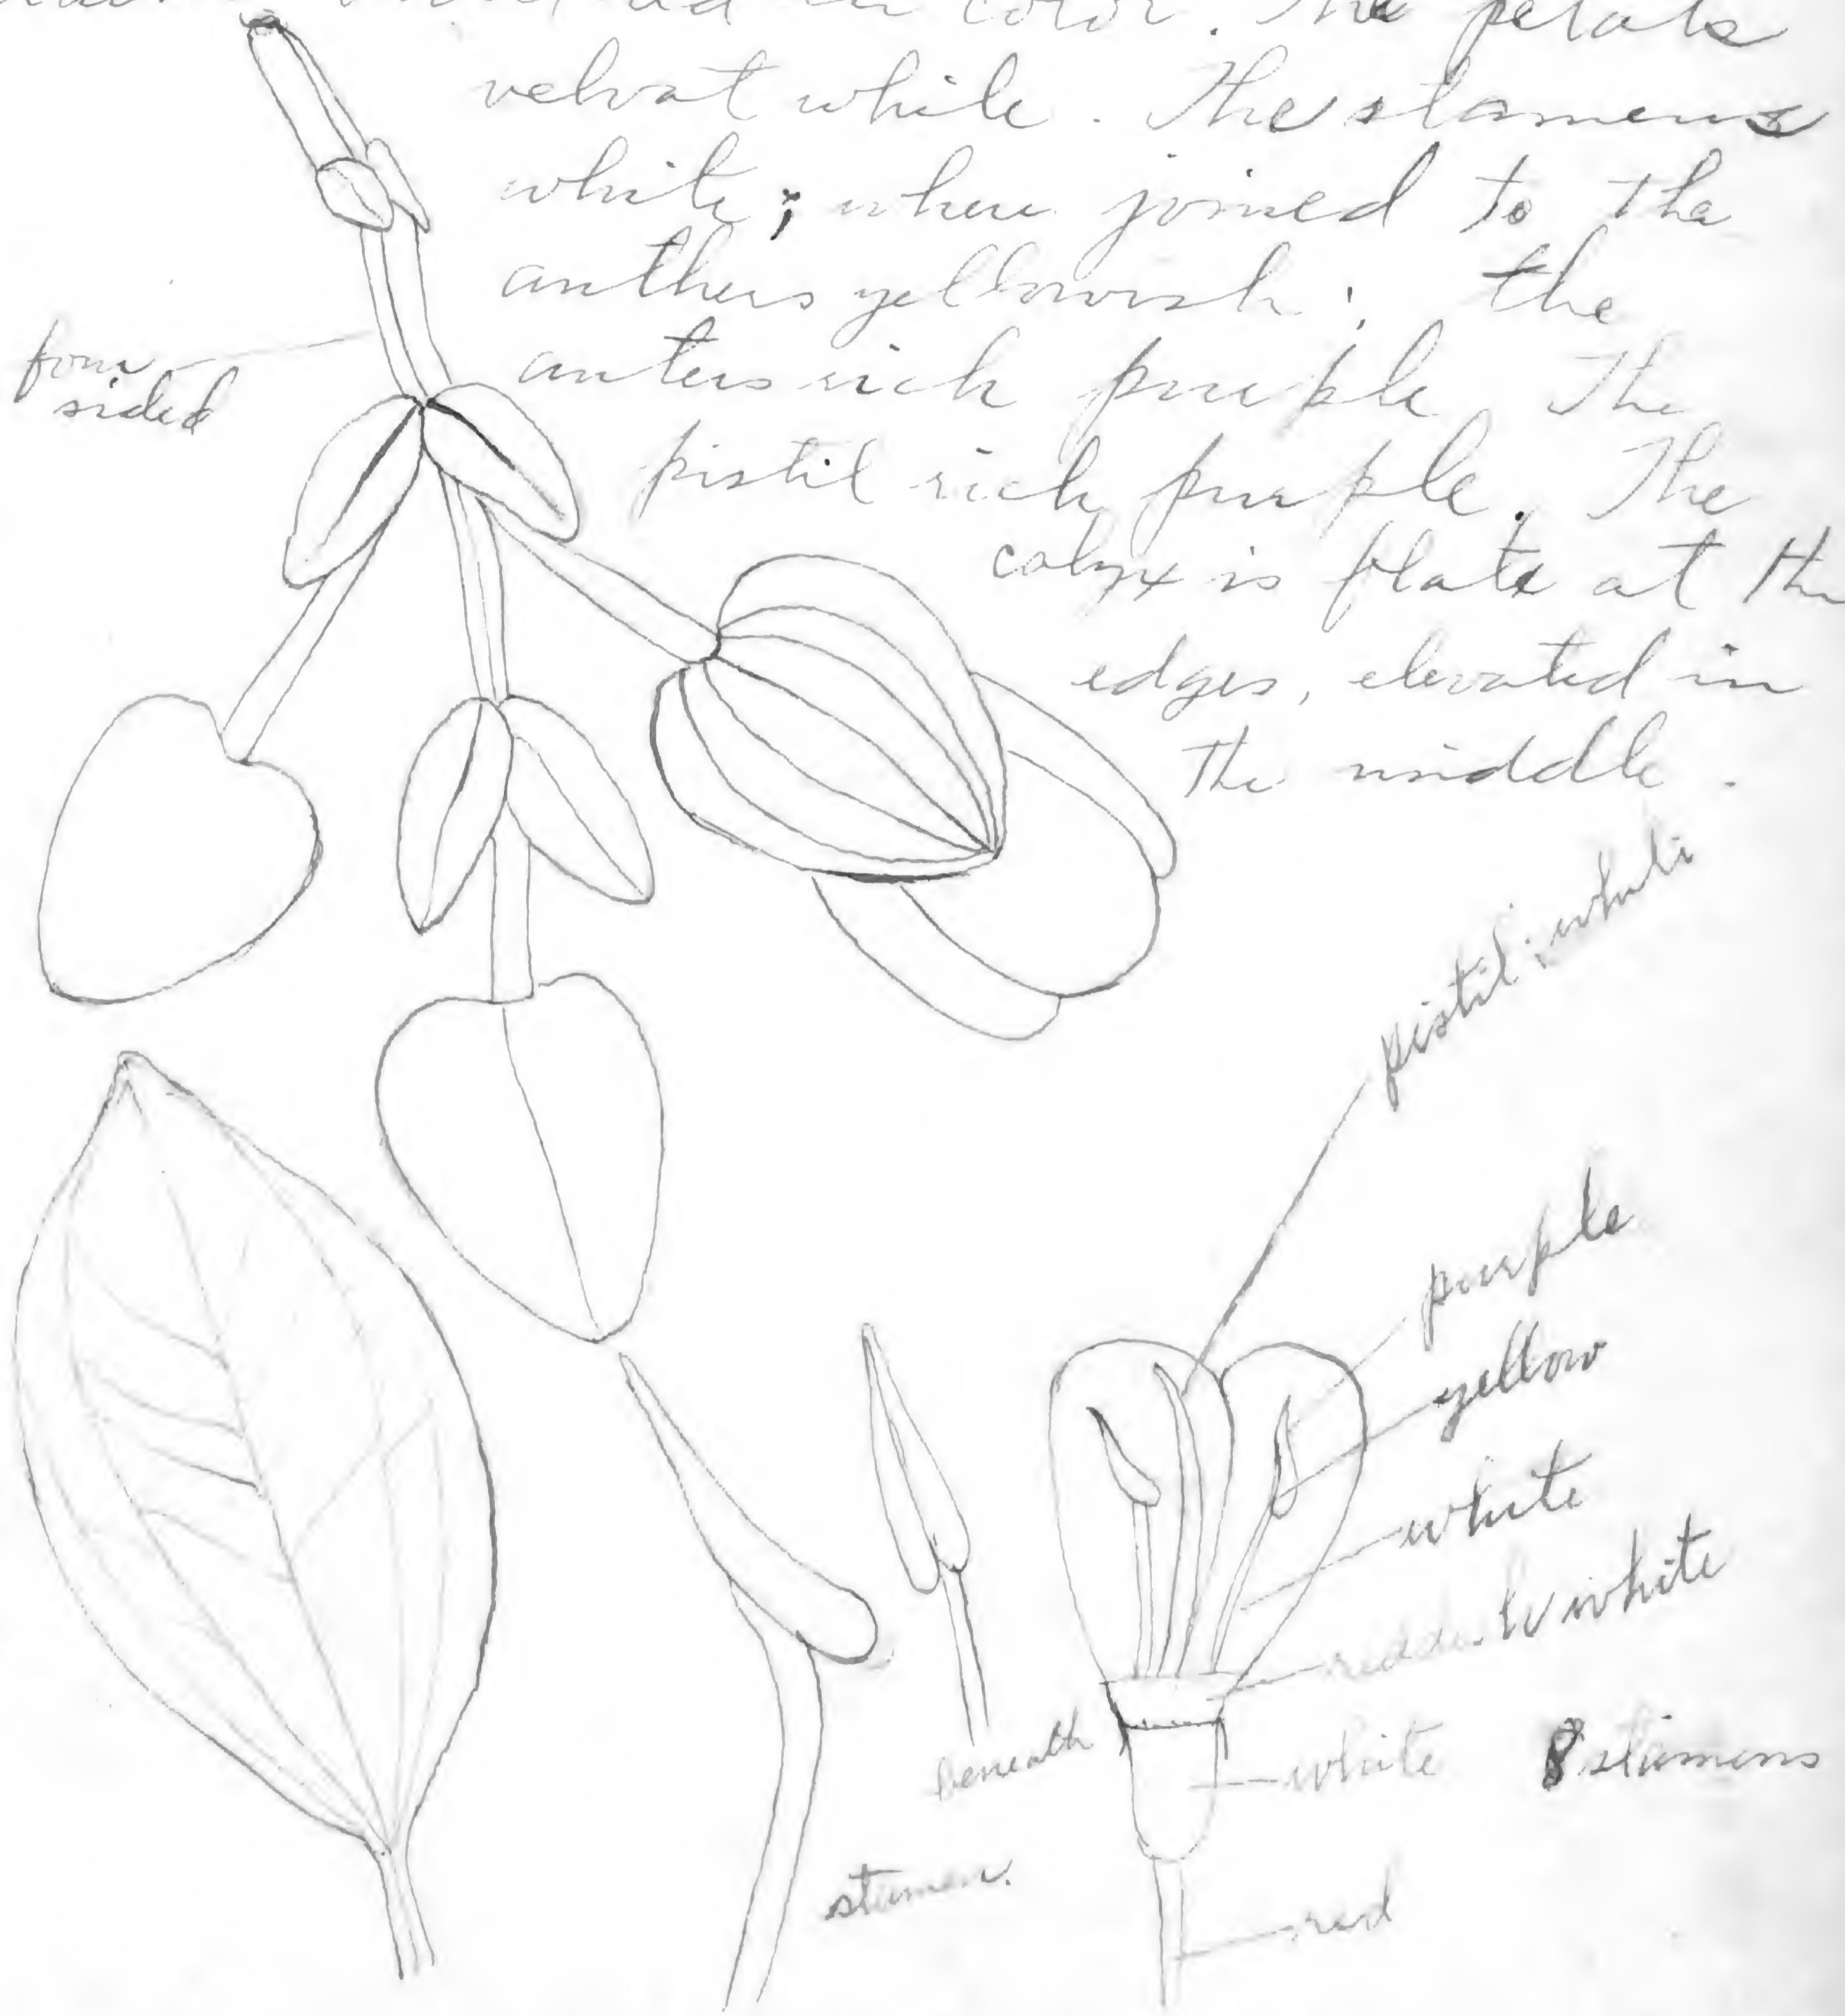 in color. The petals
velvat while. The stamens
white; where joined to the
anthers yellowish; the
anters rich purple. The
pistil rich purple. The
calyx is flate at the
edges, elevated in
the middle.
four
sided
pistil; white
purple
yellow
white
reddish white
white
8 stamens
red
beneath
stamen.